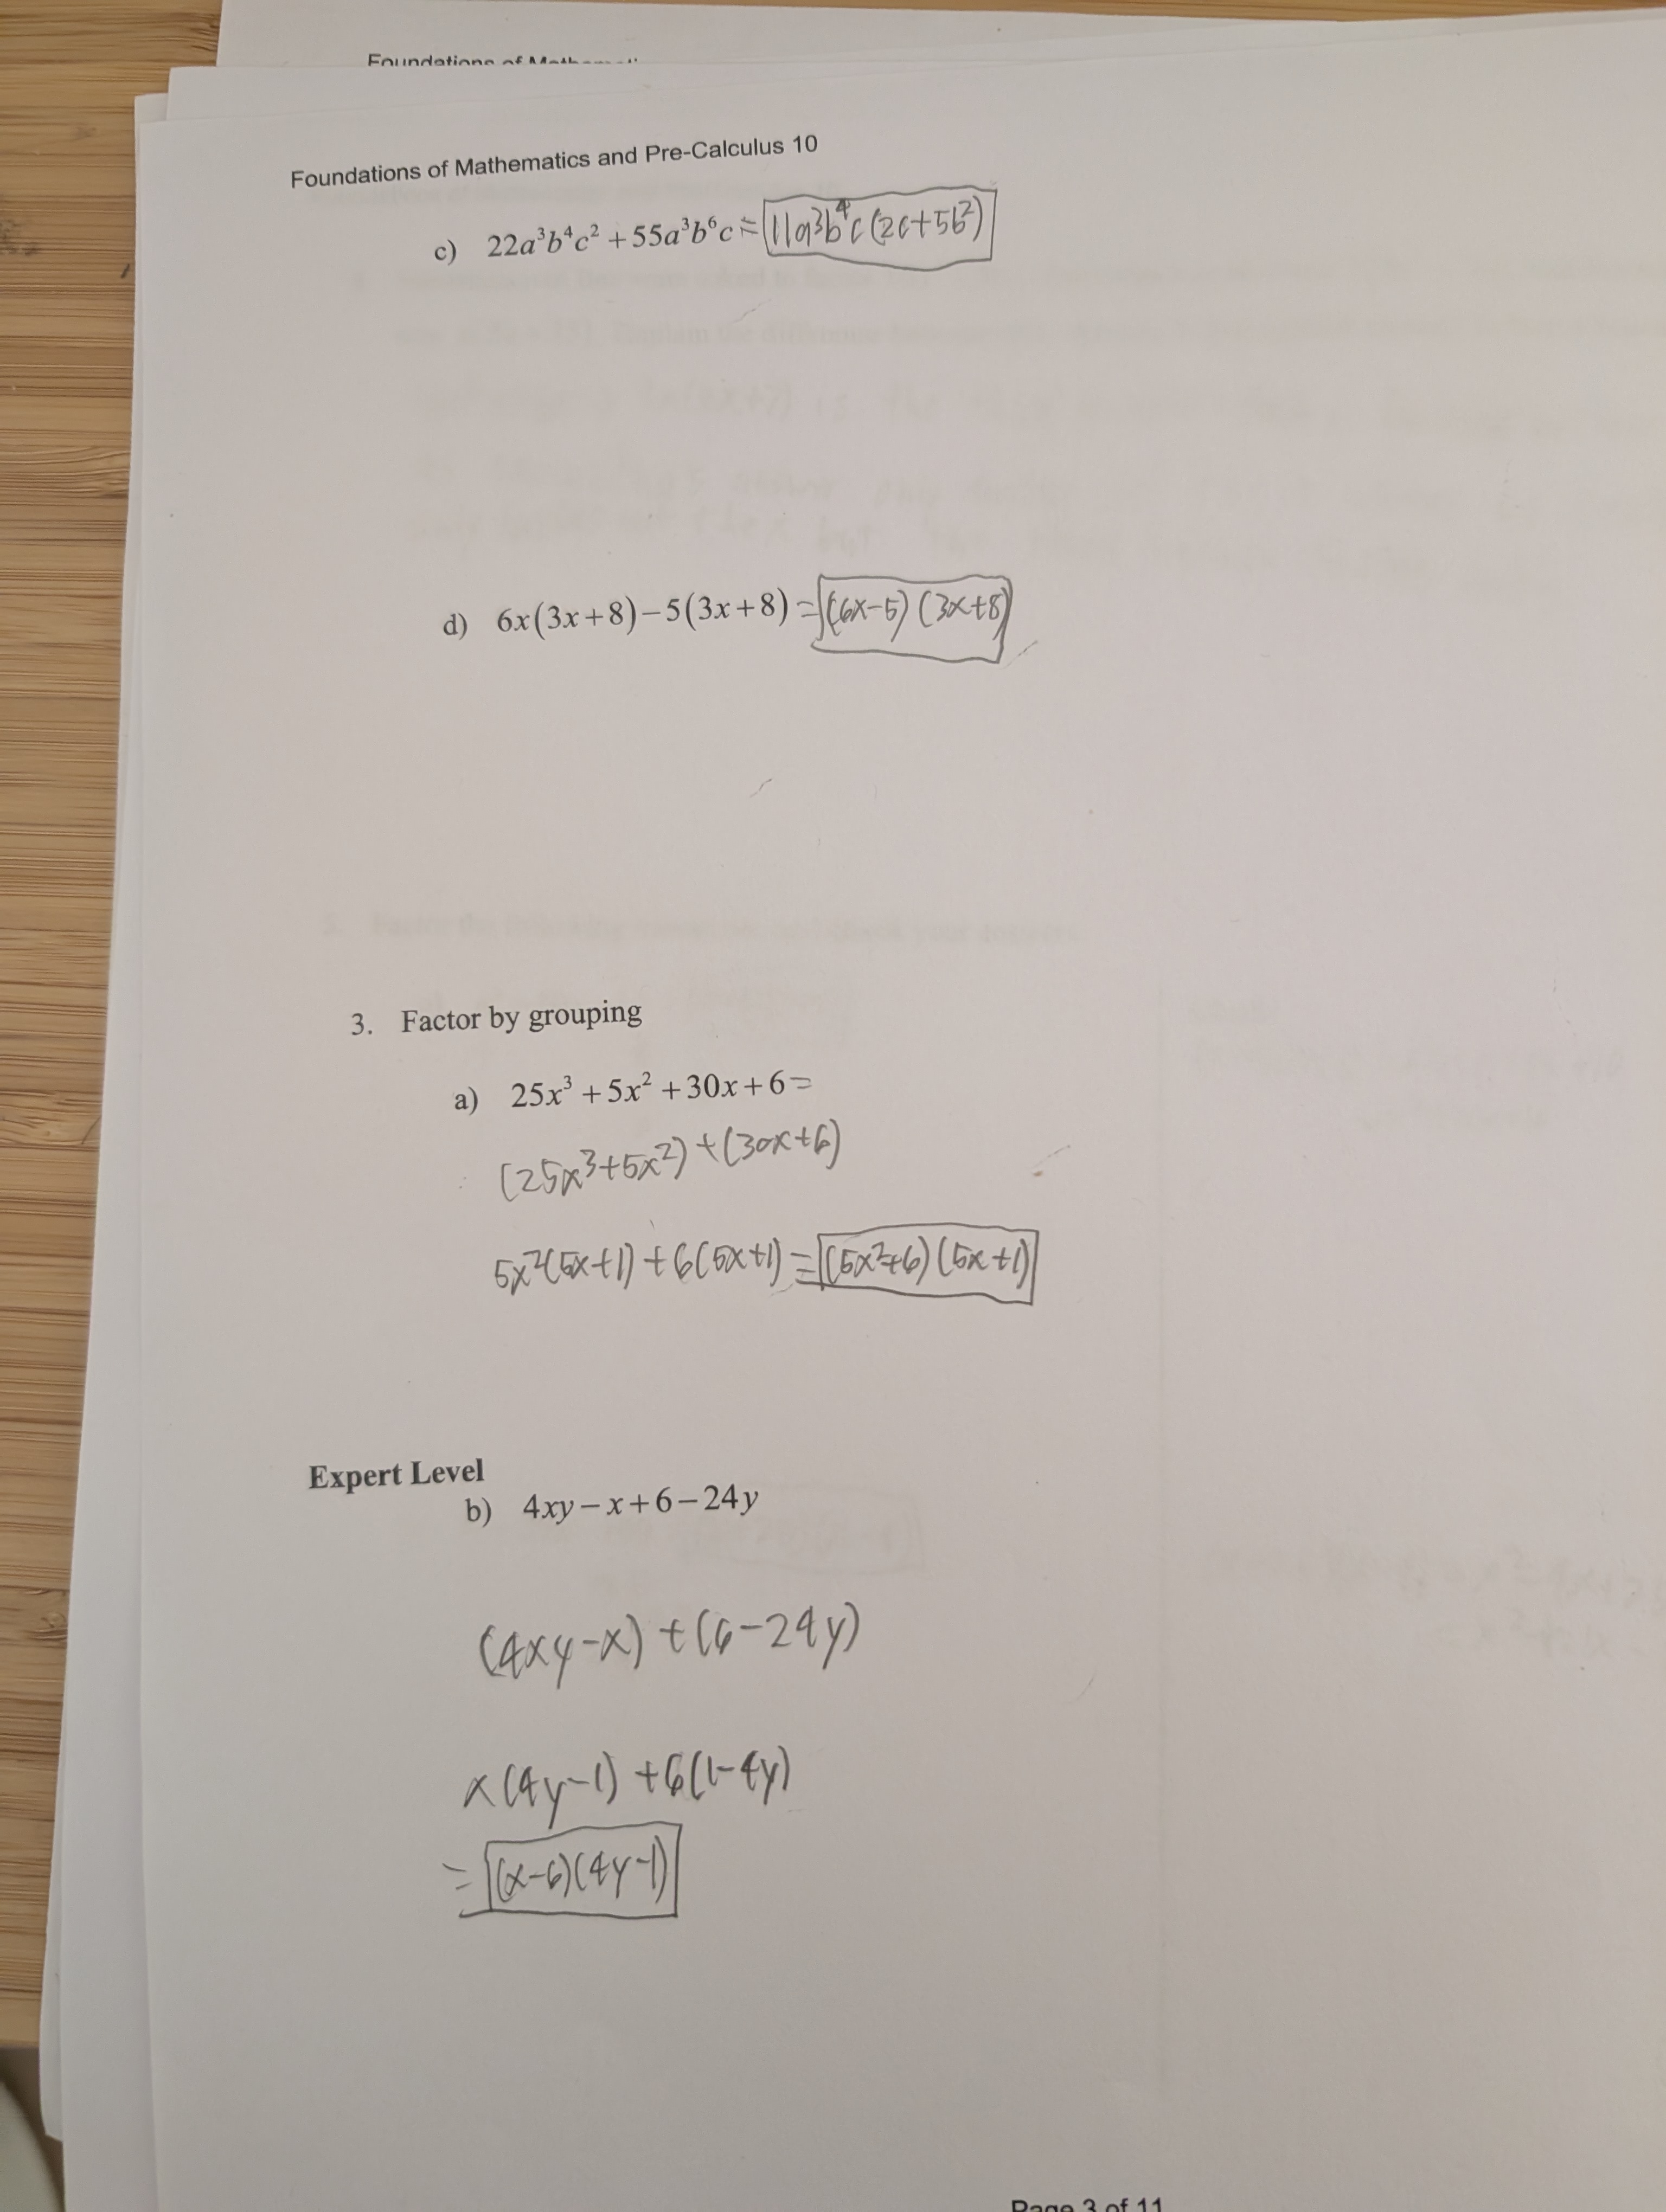 Foundations of
Foundations of Mathematics and Pre-Calculus 10
c) 22a³b⁴c² + 55a³b⁶c = 11a³b⁴c(2c+5b²)
d) 6x(3x+8)−5(3x+8) = (6x−5)(3x+8)
3. Factor by grouping
a) 25x³ + 5x² + 30x + 6 =
(25x³+5x²)+(30x+6)
5x²(5x+1)+6(5x+1) = (5x²+6)(5x+1)
Expert Level
b) 4xy − x + 6 − 24y
(4xy−x)+(6−24y)
x(4y−1)+6(1−4y)
= (x−6)(4y−1)
Page 3 of 11